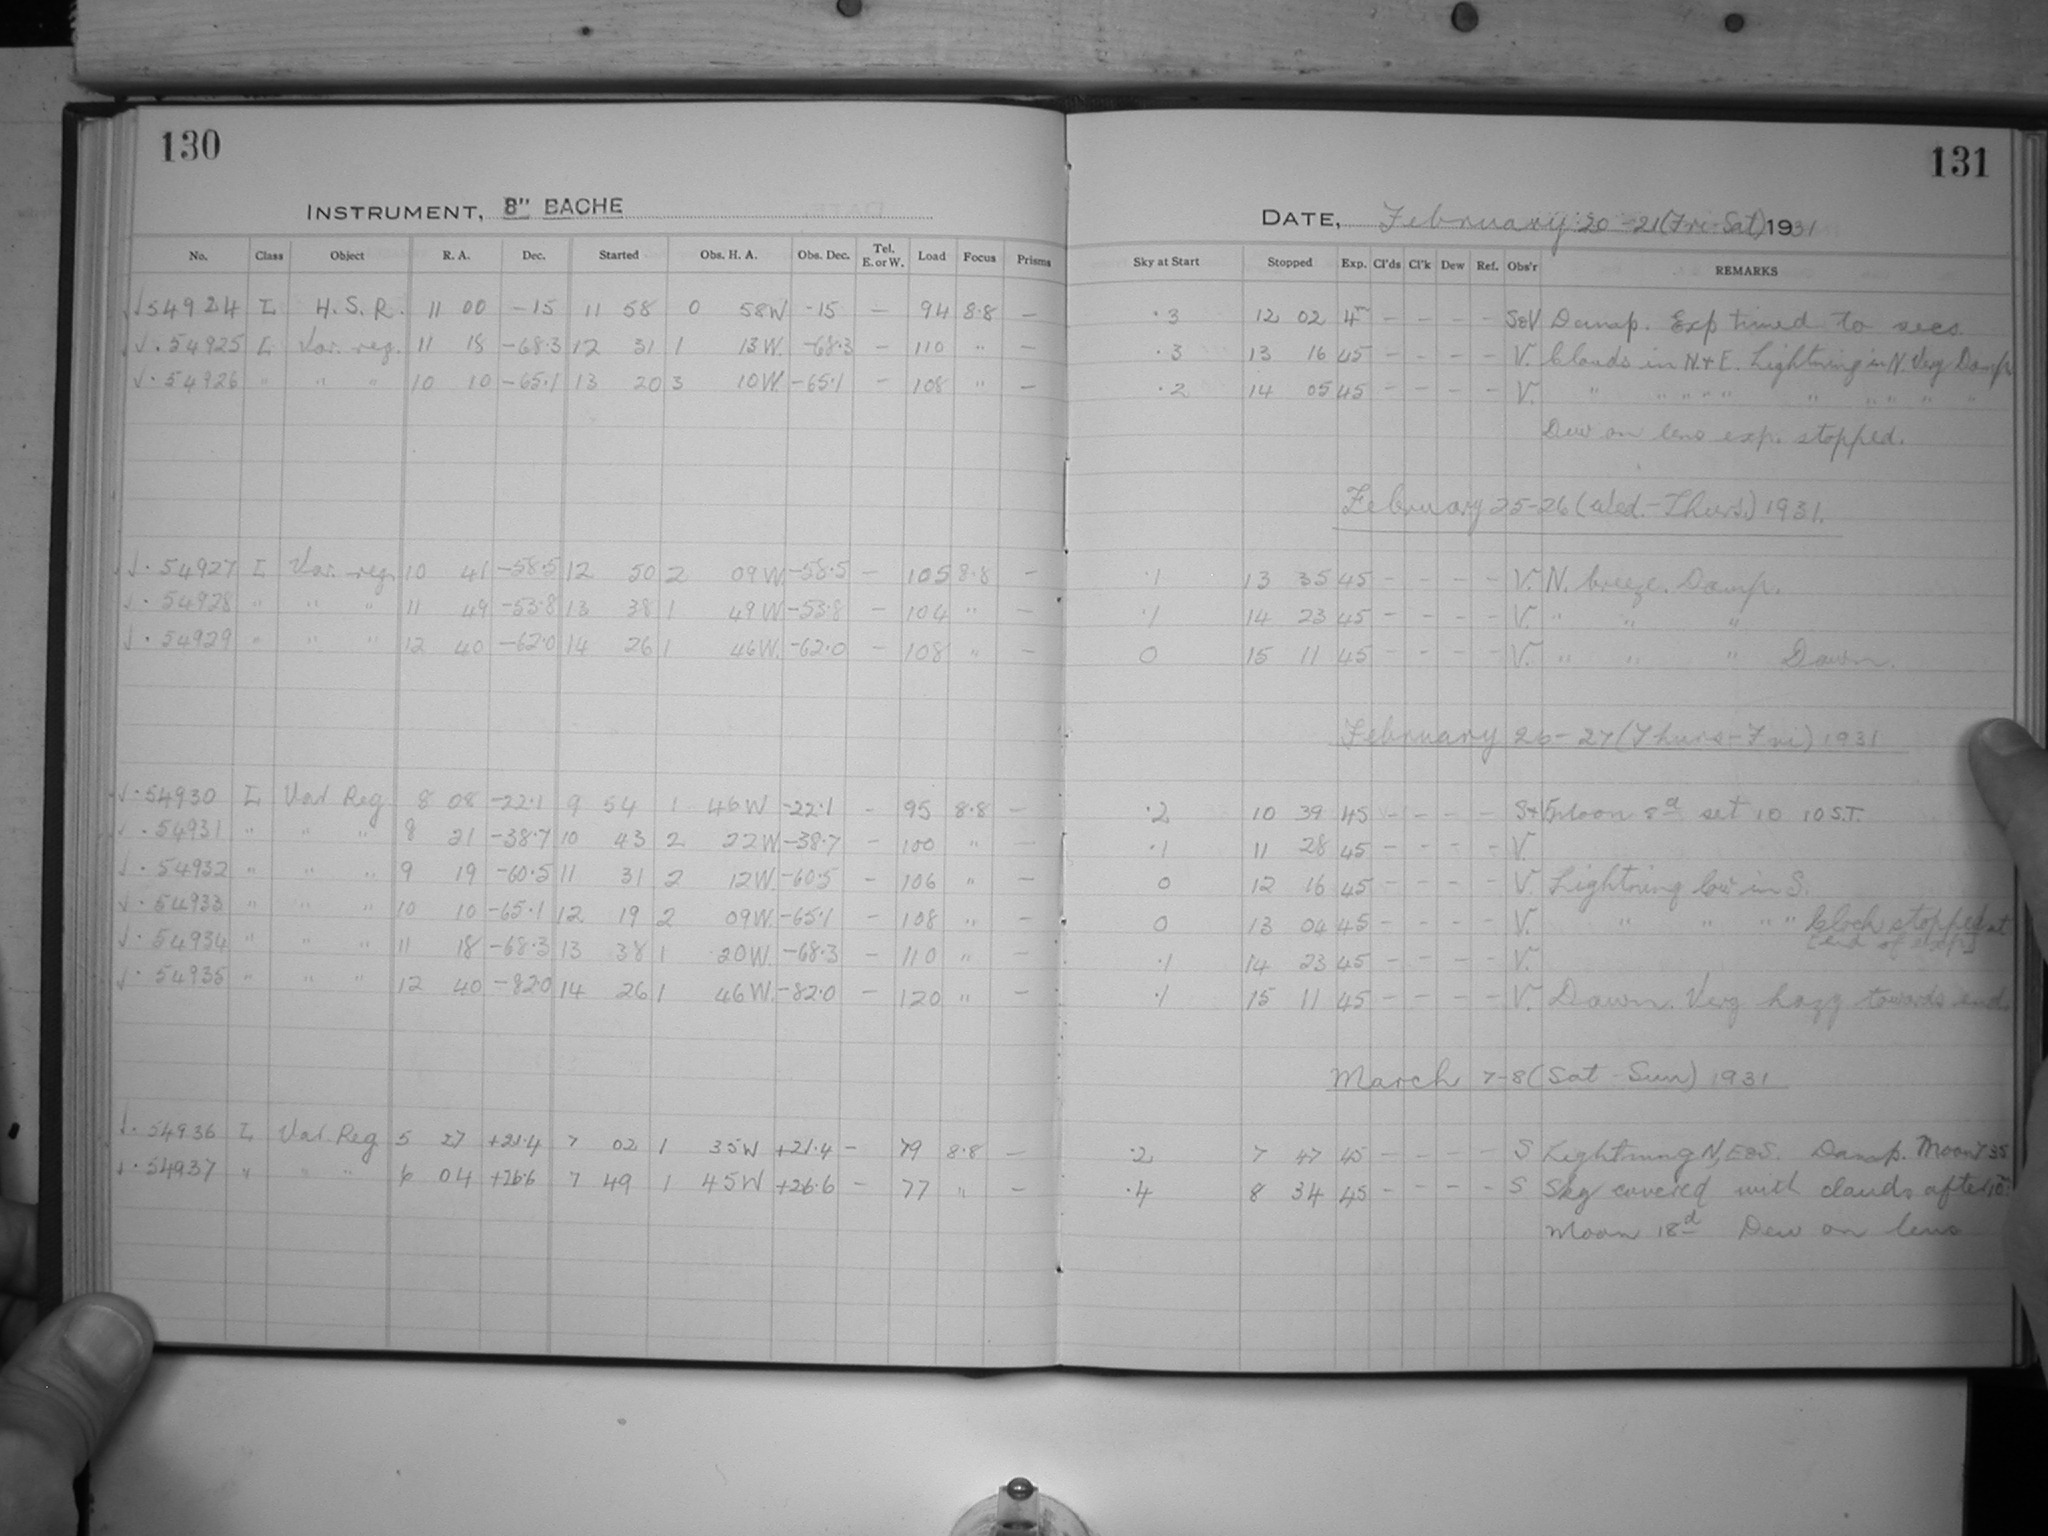 130
INSTRUMENT, 8" BACHE
No. Class Object R. A. Dec. Started Obs. H. A. Obs. Dec. Tel. E. or W. Load Focus Prisms
√54924 I H. S. R. 11 00 -15 11 58 0 58W -15 — 94 8.8 —
√.54925 I Var. reg. 11 18 -68.3 12 31 1 13W. -68.3 — 110 " —
√.54926 " " " 10 10 -65.1 13 20 3 10W. -65.1 — 108 " —
√.54927 I Var. reg. 10 41 -58.5 12 50 2 09W -58.5 — 105 8.8 —
√.54928 " " " 11 49 -53.8 13 38 1 49W -53.8 — 104 " —
√.54929 " " " 12 40 -62.0 14 26 1 46W. -62.0 — 108 " —
√.54930 I Var Reg 8 08 -22.1 9 54 1 46W -22.1 - 95 8.8 —
√.54931 " " " 8 21 -38.7 10 43 2 22W -38.7 — 100 " —
√.54932 " " " 9 19 -60.5 11 31 2 12W. -60.5 — 106 " —
√.54933 " " " 10 10 -65.1 12 19 2 09W. -65.1 — 108 " —
√.54934 " " " 11 18 -68.3 13 38 1 20W. -68.3 — 110 " —
√.54935 " " " 12 40 -82.0 14 26 1 46W. -82.0 — 120 " —
√.54936 I Var Reg 5 27 +21.4 7 02 1 35W +21.4 — 79 8.8 —
√.54937 " " " 6 04 +26.6 7 49 1 45W +26.6 — 77 " —
131
DATE, February 20-21(Fri-Sat)1931
Sky at Start Stopped Exp. Cl'ds Cl'k Dew Ref. Obs'r REMARKS
.3 12 02 - - - - S&V Damp. Exp timed to secs
.3 13 16 45 - - - - V. Clouds in N.+E. Lightning in N. Very Damp.
.2 14 05 45 - - - - V. " " " " " " " " " "
Dew on lens exp. stopped.
February 25-26 (Wed.-Thurs.) 1931.
.1 13 35 45 - - - - V. N. breeze. Damp.
.1 14 23 45 - - - - V. " " "
0 15 11 45 - - - - V. " " " Dawn.
February 26-27 (Thurs-Fri) 1931
.2 10 39 45 - - - - S+V Moon 8d set 10 10 S.T.
.1 11 28 45 - - - - V.
0 12 16 45 - - - - V. Lightning low in S.
0 13 04 45 - - - - V. " " " " Clock stopped at
[end of exp]
.1 14 23 45 - - - - V.
.1 15 11 45 - - - - V. Dawn. Very hazy towards end.
March 7-8 (Sat-Sun) 1931
.2 7 47 45 - - - - S Lightning N, E & S. Damp. Moon 7 35
.4 8 34 45 - - - - S Sky covered with clouds after
Moon 18d Dew on lens